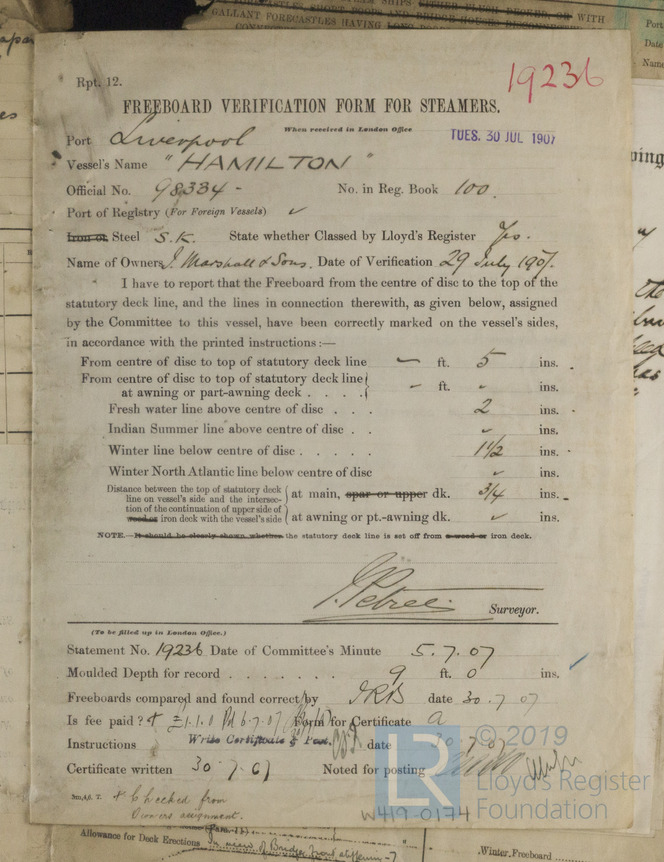 GALLANT FORECASTLES HAVING
WITH
Rpt. 12.
19236
FREEBOARD VERIFICATION FORM FOR STEAMERS.
When received in London Office
Port Liverpool
TUES. 30 JUL 1907
Vessel's Name "HAMILTON"
Official No. 98334 - No. in Reg. Book 100.
Port of Registry (For Foreign Vessels) ✓
Iron or Steel S.K. State whether Classed by Lloyd's Register Yes.
Name of Owners J. Marshall & Sons. Date of Verification 29 July 1907.
I have to report that the Freeboard from the centre of disc to the top of the
statutory deck line, and the lines in connection therewith, as given below, assigned
by the Committee to this vessel, have been correctly marked on the vessel's sides,
in accordance with the printed instructions:—
From centre of disc to top of statutory deck line - ft. 5 ins.
From centre of disc to top of statutory deck line
at awning or part-awning deck . . . . - ft. " ins.
Fresh water line above centre of disc . . . 2 ins.
Indian Summer line above centre of disc . . ✓ ins.
Winter line below centre of disc . . . . . 1 1/2 ins.
Winter North Atlantic line below centre of disc ✓ ins.
Distance between the top of statutory deck
line on vessel's side and the intersec-
tion of the continuation of upper side of
wood or iron deck with the vessel's side
at main, spar or upper dk. 3/4 ins.
at awning or pt.-awning dk. ✓ ins.
NOTE.—It should be clearly shown whether the statutory deck line is set off from a wood or iron deck.
J. Petree Surveyor.
(To be filled up in London Office.)
Statement No. 19236 Date of Committee's Minute 5.7.07
Moulded Depth for record . . . . . . . 9 ft. 0 ins.
Freeboards compared and found correct by date 30.7.07
Is fee paid? + £1.1.0 Pd 6.7.07 Form for Certificate a
Instructions Write Certificate & Post. date 30.7.07
Certificate written 30.7.07 Noted for posting
+ Checked from
Owners assignment.
© 2019
LR
Lloyd's Register
Foundation
W419-0174
Allowance for Deck Erections
Winter Freeboard